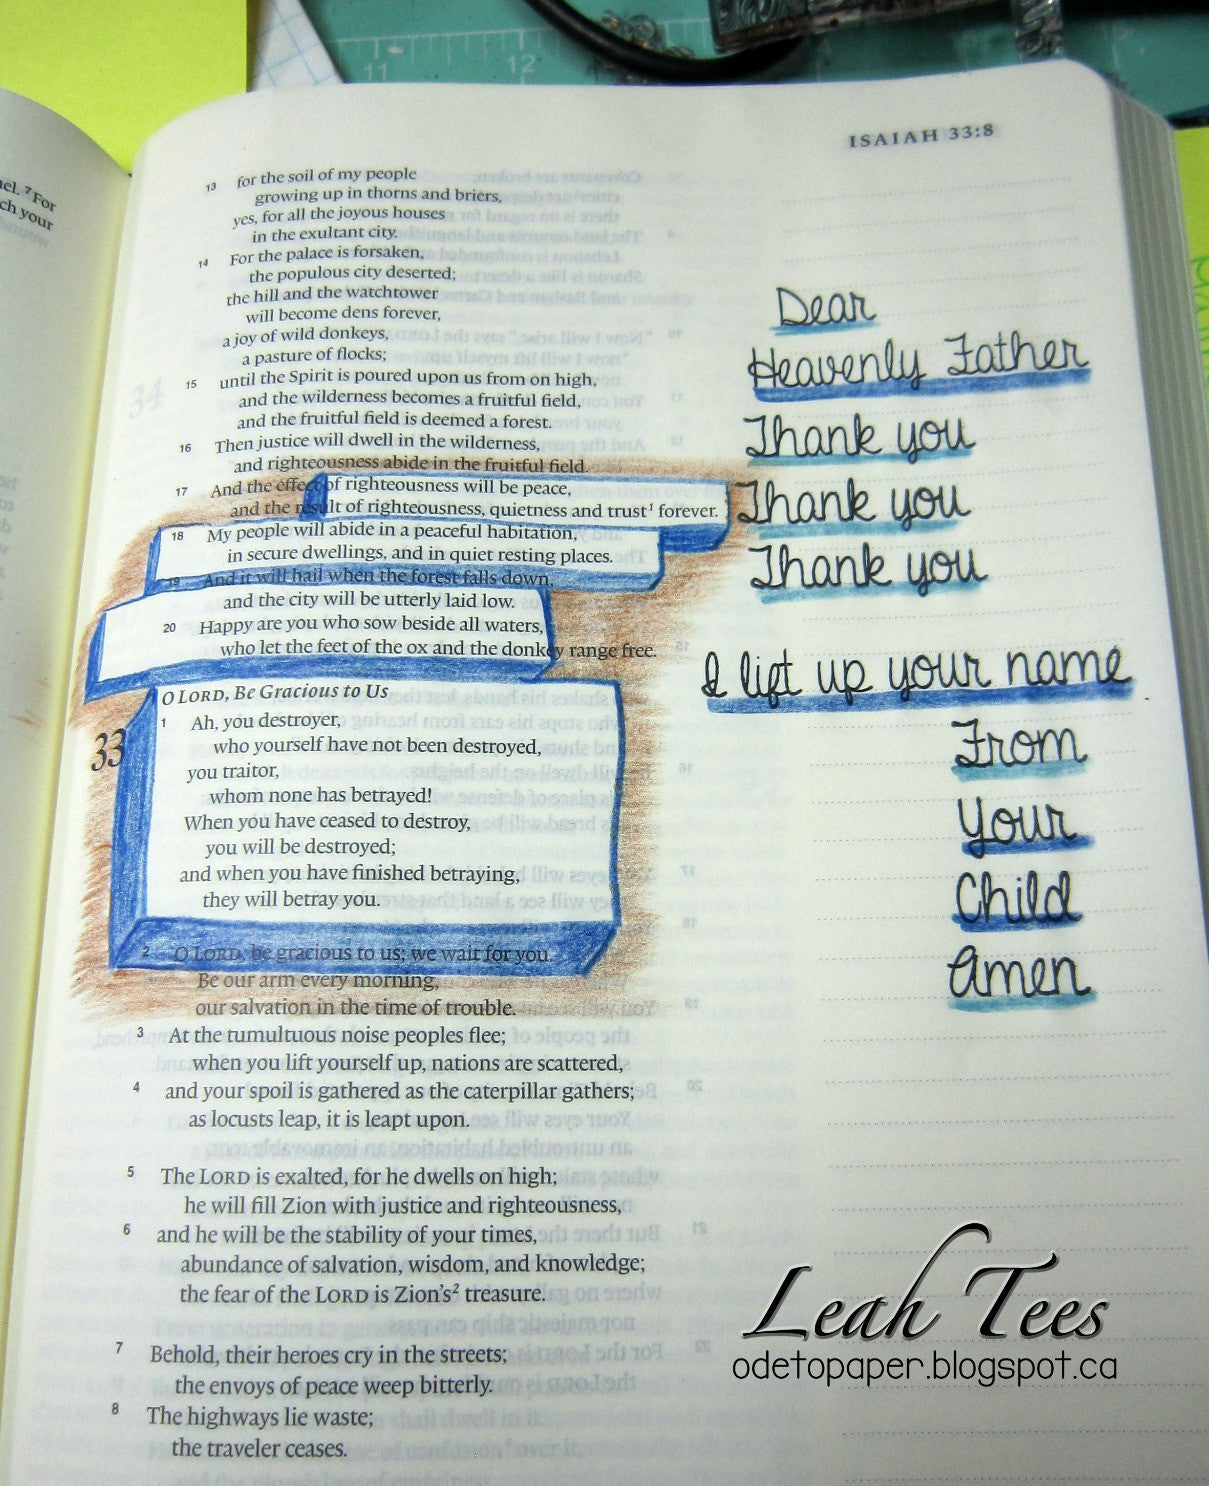 11 12
ISAIAH 33:8
el. 7 For
ch your
13 for the soil of my people
growing up in thorns and briers,
yes, for all the joyous houses
in the exultant city.
14 For the palace is forsaken,
the populous city deserted;
the hill and the watchtower
will become dens forever,
a joy of wild donkeys,
a pasture of flocks;
15 until the Spirit is poured upon us from on high,
and the wilderness becomes a fruitful field,
and the fruitful field is deemed a forest.
16 Then justice will dwell in the wilderness,
and righteousness abide in the fruitful field.
17 And the effect of righteousness will be peace,
and the result of righteousness, quietness and trust¹ forever.
18 My people will abide in a peaceful habitation,
in secure dwellings, and in quiet resting places.
19 And it will hail when the forest falls down,
and the city will be utterly laid low.
20 Happy are you who sow beside all waters,
who let the feet of the ox and the donkey range free.
O LORD, Be Gracious to Us
33
1 Ah, you destroyer,
who yourself have not been destroyed,
you traitor,
whom none has betrayed!
When you have ceased to destroy,
you will be destroyed;
and when you have finished betraying,
they will betray you.
2 O LORD, be gracious to us; we wait for you.
Be our arm every morning,
our salvation in the time of trouble.
3 At the tumultuous noise peoples flee;
when you lift yourself up, nations are scattered,
4 and your spoil is gathered as the caterpillar gathers;
as locusts leap, it is leapt upon.
5 The LORD is exalted, for he dwells on high;
he will fill Zion with justice and righteousness,
6 and he will be the stability of your times,
abundance of salvation, wisdom, and knowledge;
the fear of the LORD is Zion's² treasure.
7 Behold, their heroes cry in the streets;
the envoys of peace weep bitterly.
8 The highways lie waste;
the traveler ceases.
Dear
Heavenly Father
Thank you
Thank you
Thank you
I lift up your name
From
Your
Child
Amen
Leah Tees
odetopaper.blogspot.ca